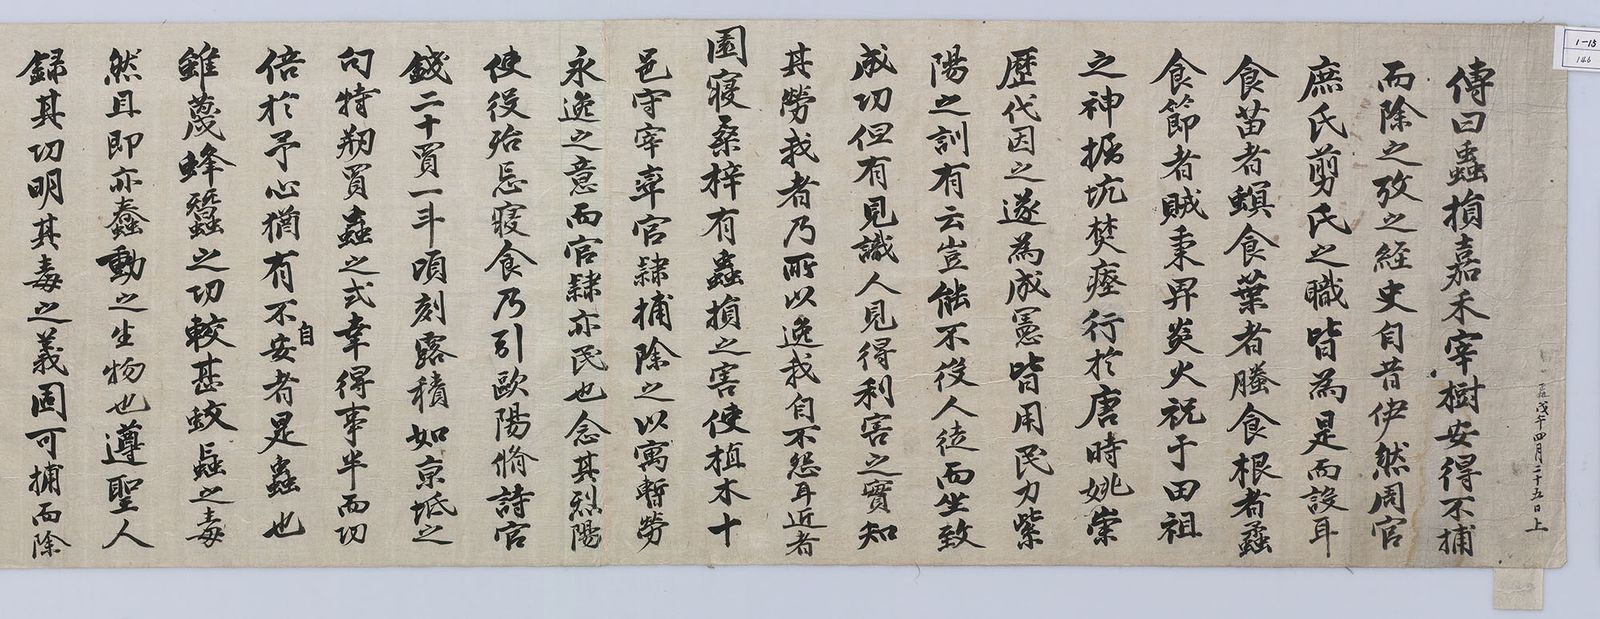 1-15
146
戊午四月二十五日上
傳曰蟲損嘉禾宰樹安得不捕
而除之攷之經史自昔伊然周官
庶氏剪氏之職皆為是而設耳
食苗者螟食葉者螣食根者蟊
食節者賊秉畀炎火祝于田祖
之神掘坑焚瘞行於唐時姚崇
歷代因之遂為成憲皆用民力紫
陽之訓有云豈能不役人徒而坐致
成功但有見識人見得利害之實知
其勞我者乃所以逸我自不怨耳近者
園寢桑梓有蟲損之害使植木十
邑守宰率官隷捕除之以寓暫勞
永逸之意而官隷亦民也念其烈陽
使役殆忘寢食乃引歐陽脩詩官
錢二十買一斗頃刻露積如京坻之
句特刱買蟲之式幸得事半而功
倍於予心猶有不自安者是蟲也
雖蔑蜂蠶之功較甚蚊蝱之毒
然且即亦蠢動之生物也遵聖人
錄其功明其毒之義固可捕而除